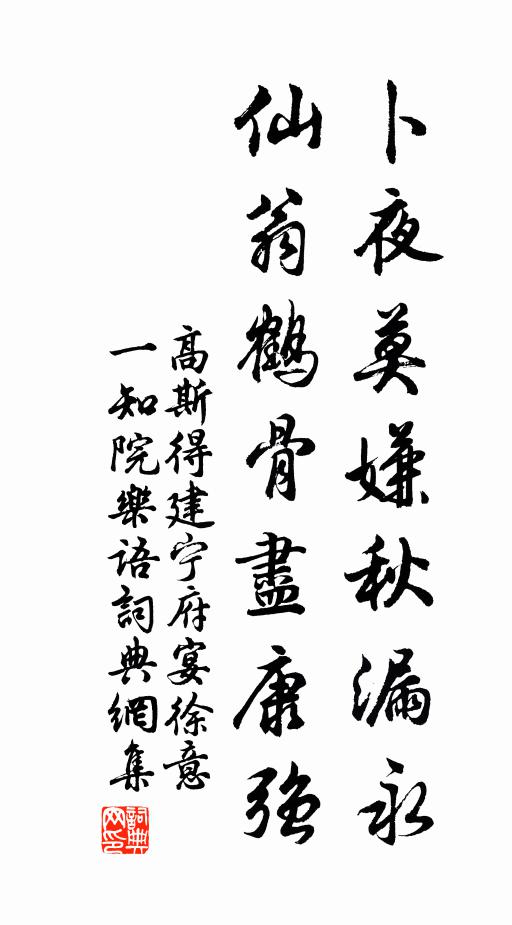 卜夜莫嫌秋漏永
仙翁鶴骨盡康强
高斯得建宁府宴徐意
一知院樂語詞典網集
詞典网印